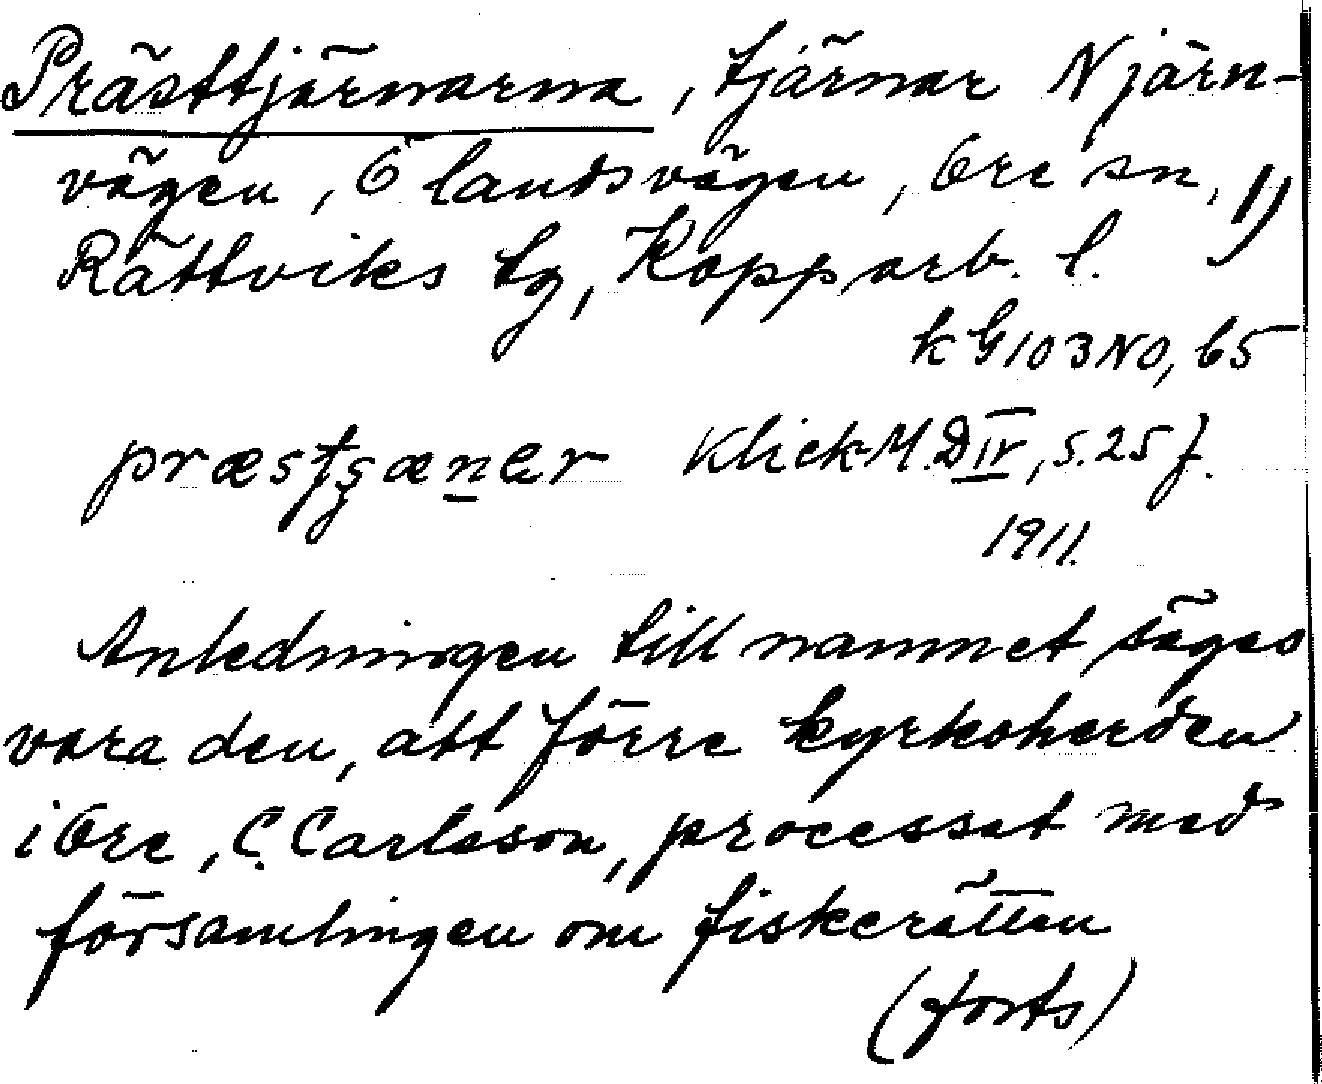 Prästtjärnarna, tjärnar N järn-
vägen, Ö landsvägen, Ore sn, 1)
Rättviks tg, Kopparb. l.
k G 103 NO, 65
præstʂæn̲ər Klick M. D IV, s. 25 f.
1911.
Anledningen till namnet säges
vara den, att förre kyrkoherden
i Ore, C. Carlsson, processat med
församlingen om fiskerätten
(forts)